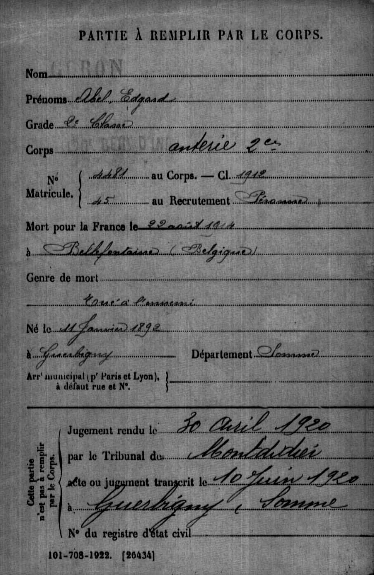 PARTIE À REMPLIR PAR LE CORPS.
Nom
Prénoms Abel, Edgard
Grade 2e Classe
Corps anterie 2
N° Matricule. 4481 au Corps. — Cl. 1912
45 au Recrutement Péronne
Mort pour la France le 22 août 1914
à Bellefontaine (Belgique)
Genre de mort
Tué à l'ennemi
Né le 11 Janvier 1892
à Guerbigny Département Somme
Arr^t municipal (p^r Paris et Lyon), à défaut rue et N°.
Cette partie n'est pas à remplir par le Corps.
Jugement rendu le 30 Avril 1920
par le Tribunal de Montdidier
acte ou jugement transcrit le 10 Juin 1920
à Guerbigny, Somme
N° du registre d'état civil
101-708-1922. [26434]